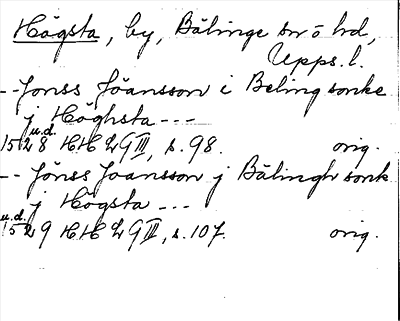 Högsta, by, Bälinge sn o hd,
Upps. l.
-- Jonss Joansson i Beling sonke
j Höghsta ---
u.d.
1528 HH LG III, s. 98. orig.
-- Jönss Joansson j Bälingh sonk
j Högsta ---
u.d.
1529 HH LG II, s. 107. orig.